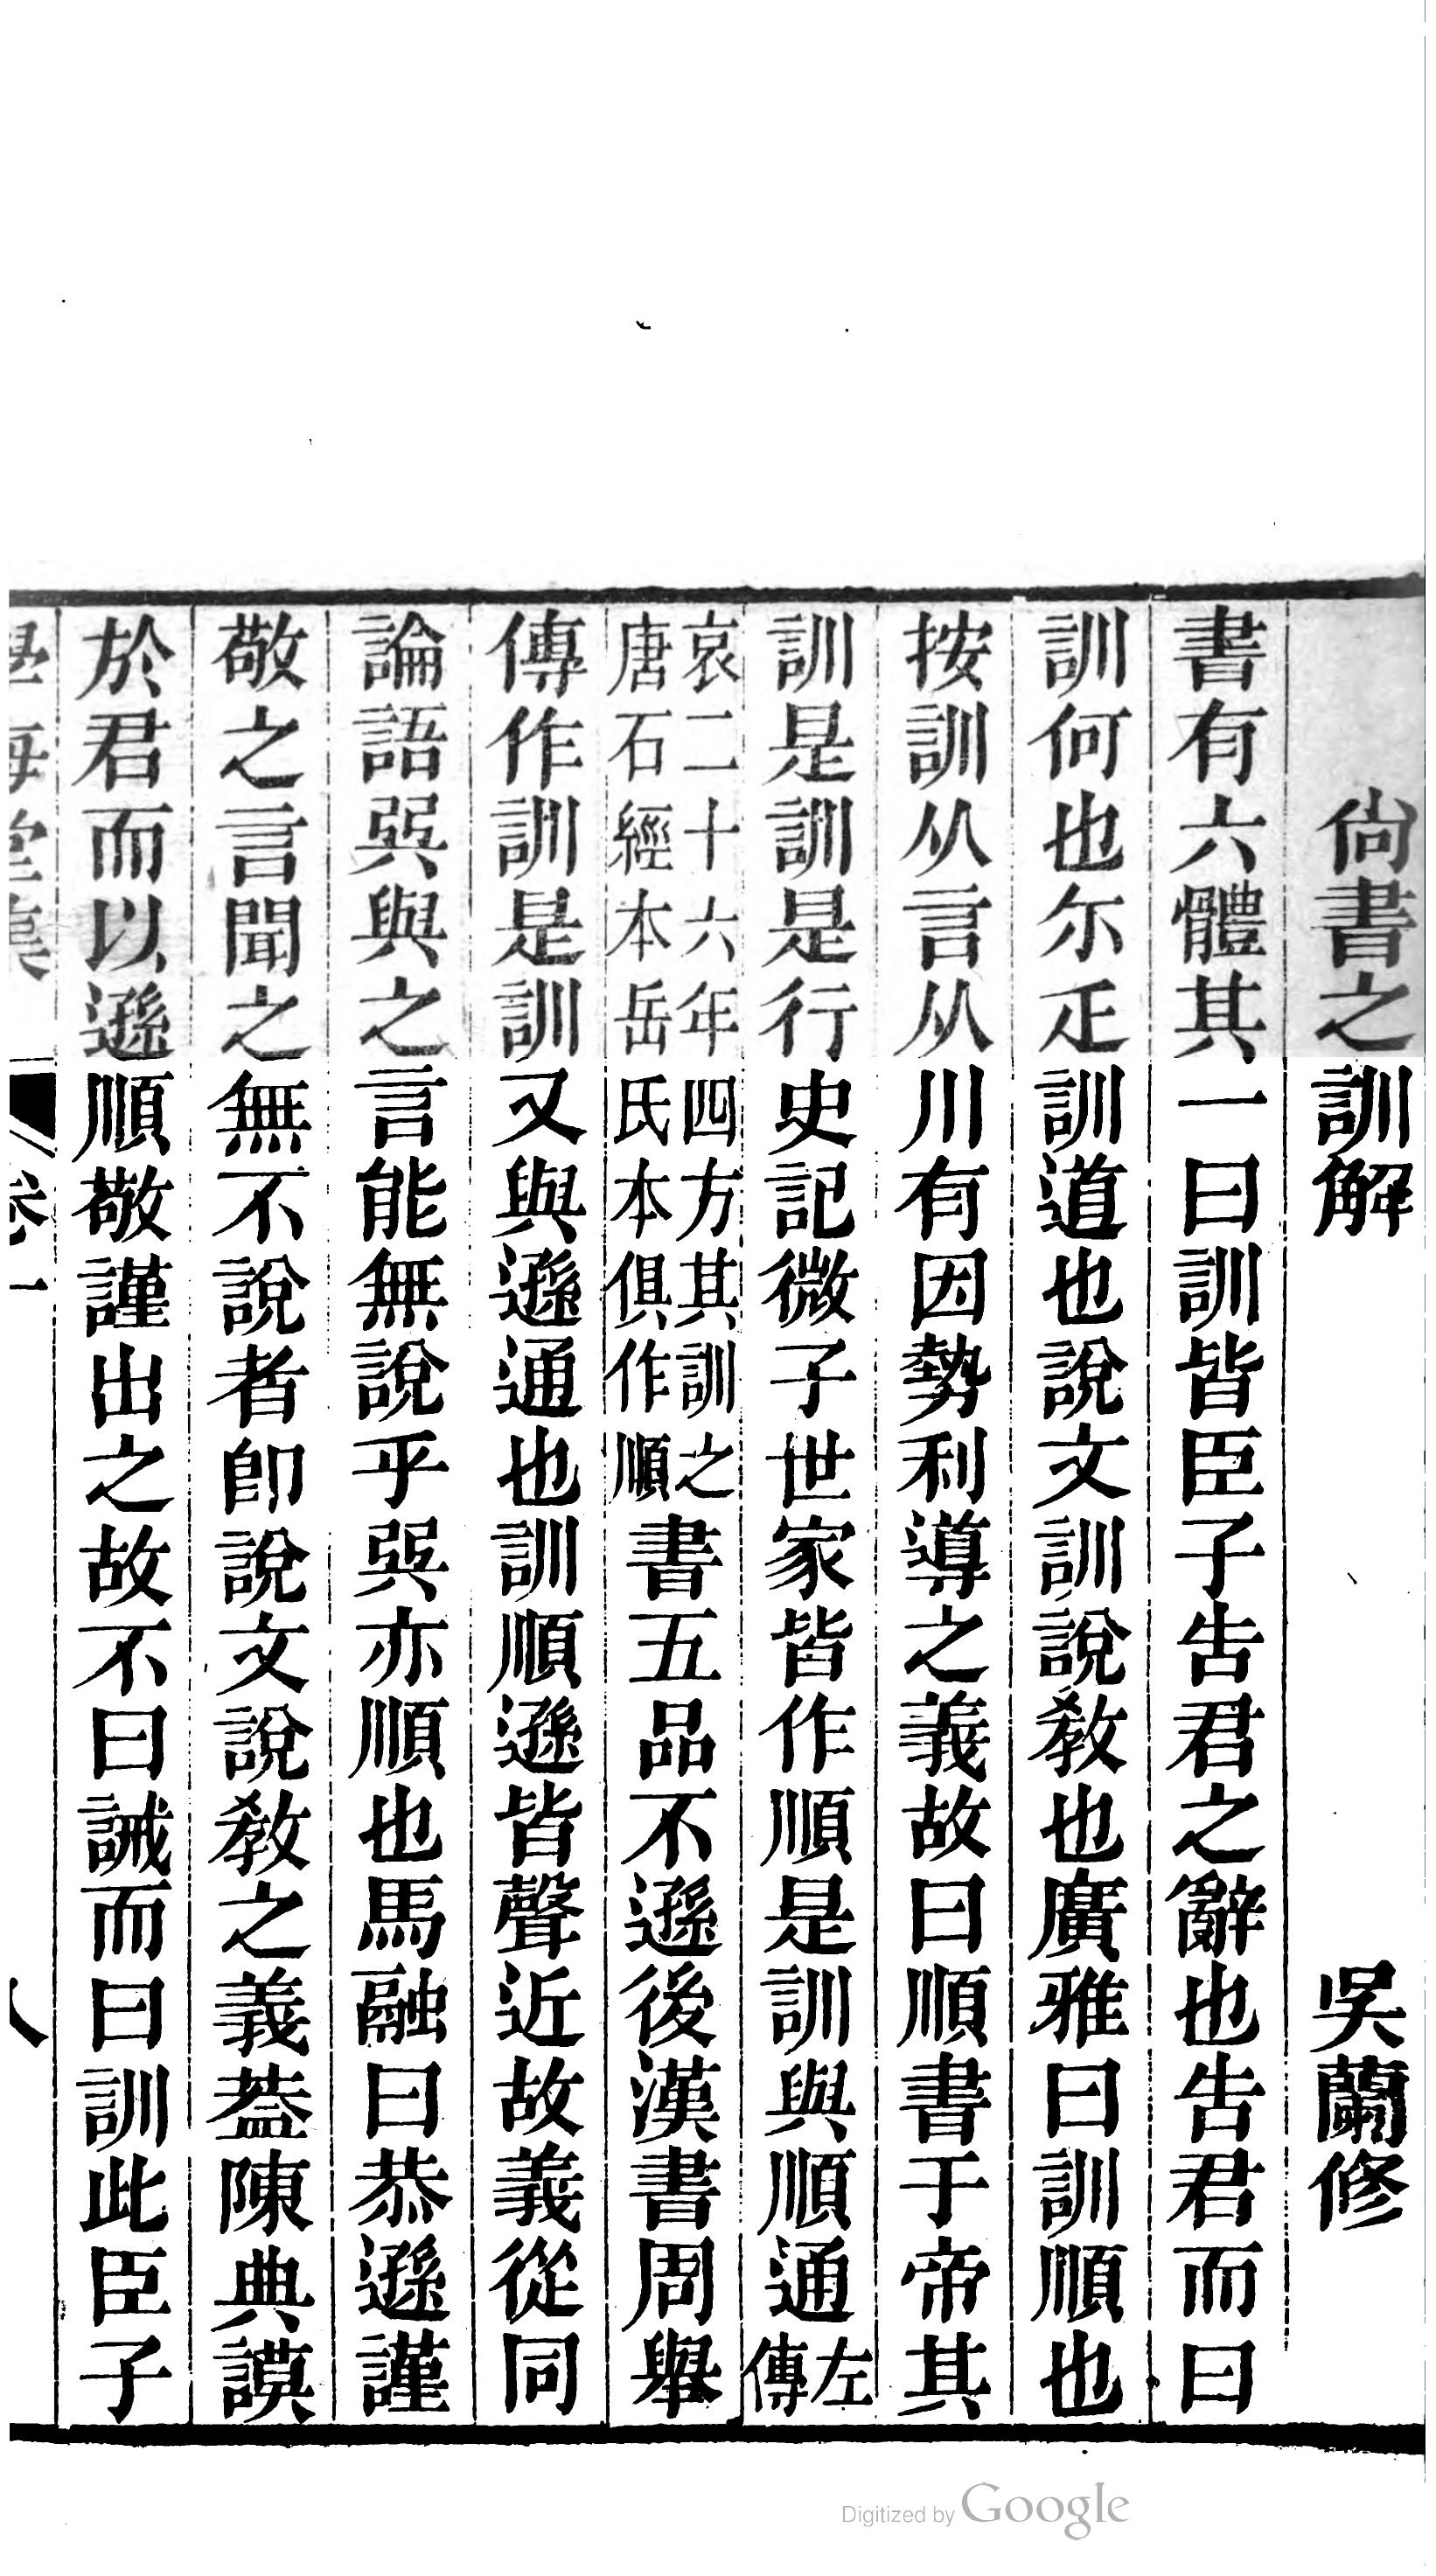 尙書之訓解 吳蘭修
書有六體其一曰訓皆臣子告君之辭也告君而曰
訓何也尓疋訓道也說文訓說敎也廣雅曰訓順也
按訓从言从川有因勢利導之義故曰順書于帝其
訓是訓是行史記微子世家皆作順是訓與順通左傳
哀二十六年四方其訓之唐石經本岳氏本俱作順書五品不遜後漢書周舉
傳作訓是訓又與遜通也訓順遜皆聲近故義從同
論語巽與之言能無說乎巽亦順也馬融曰恭遜謹
敬之言聞之無不說者卽說文說敎之義葢陳典謨
於君而以遜順敬謹出之故不曰誡而曰訓此臣子
學海堂集 卷一 八
Digitized by Google